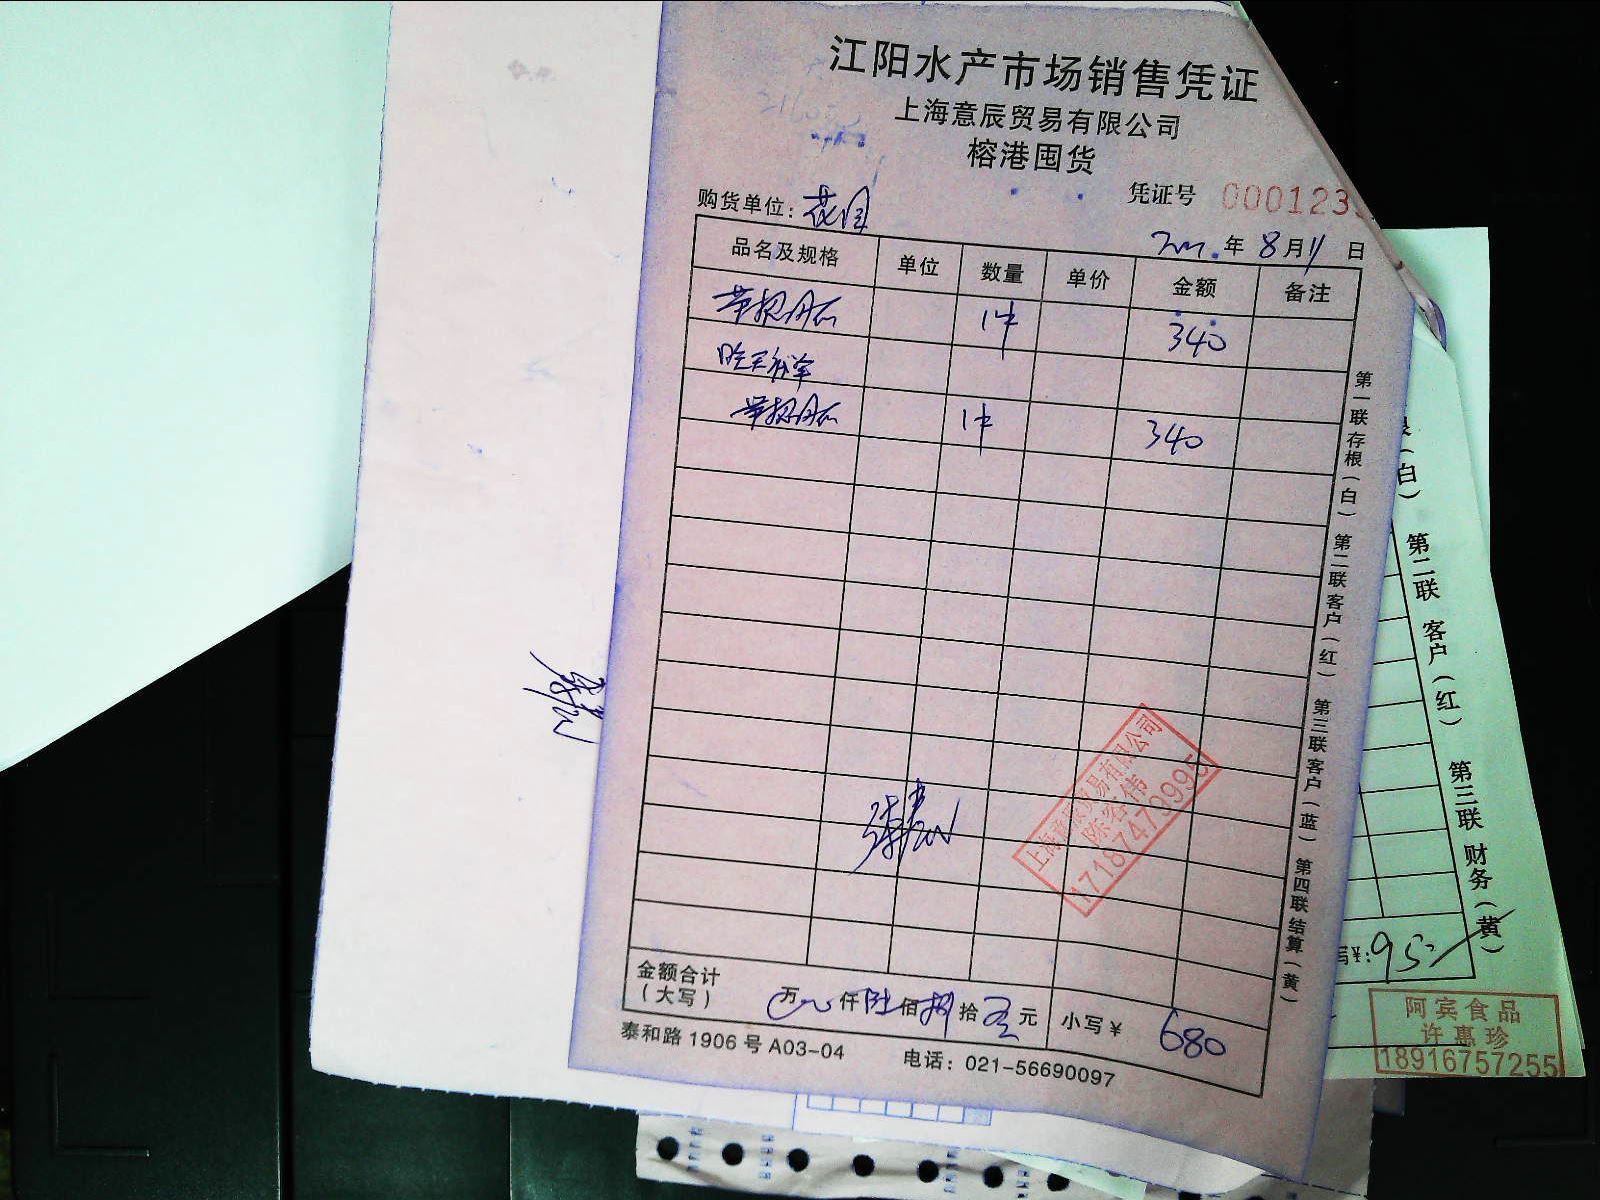 江阳水产市场销售凭证
上海意辰贸易有限公司
榕港囤货
凭证号 000123
购货单位：花园
年 8月11日
品名及规格 单位 数量 单价 金额 备注
1件 340
1件 340
第一联存根（白） 第二联客户（红） 第三联客户（蓝） 第四联结算（黄）
上海意辰贸易有限公司
陈容伟
17187479995
金额合计（大写） 万 仟 陆佰捌拾 元 小写￥ 680
泰和路1906号A03-04 电话：021-56690097
（白） 第二联 客户（红） 第三联 财务（黄）
写￥：952
阿宾食品
许惠珍
18916757255